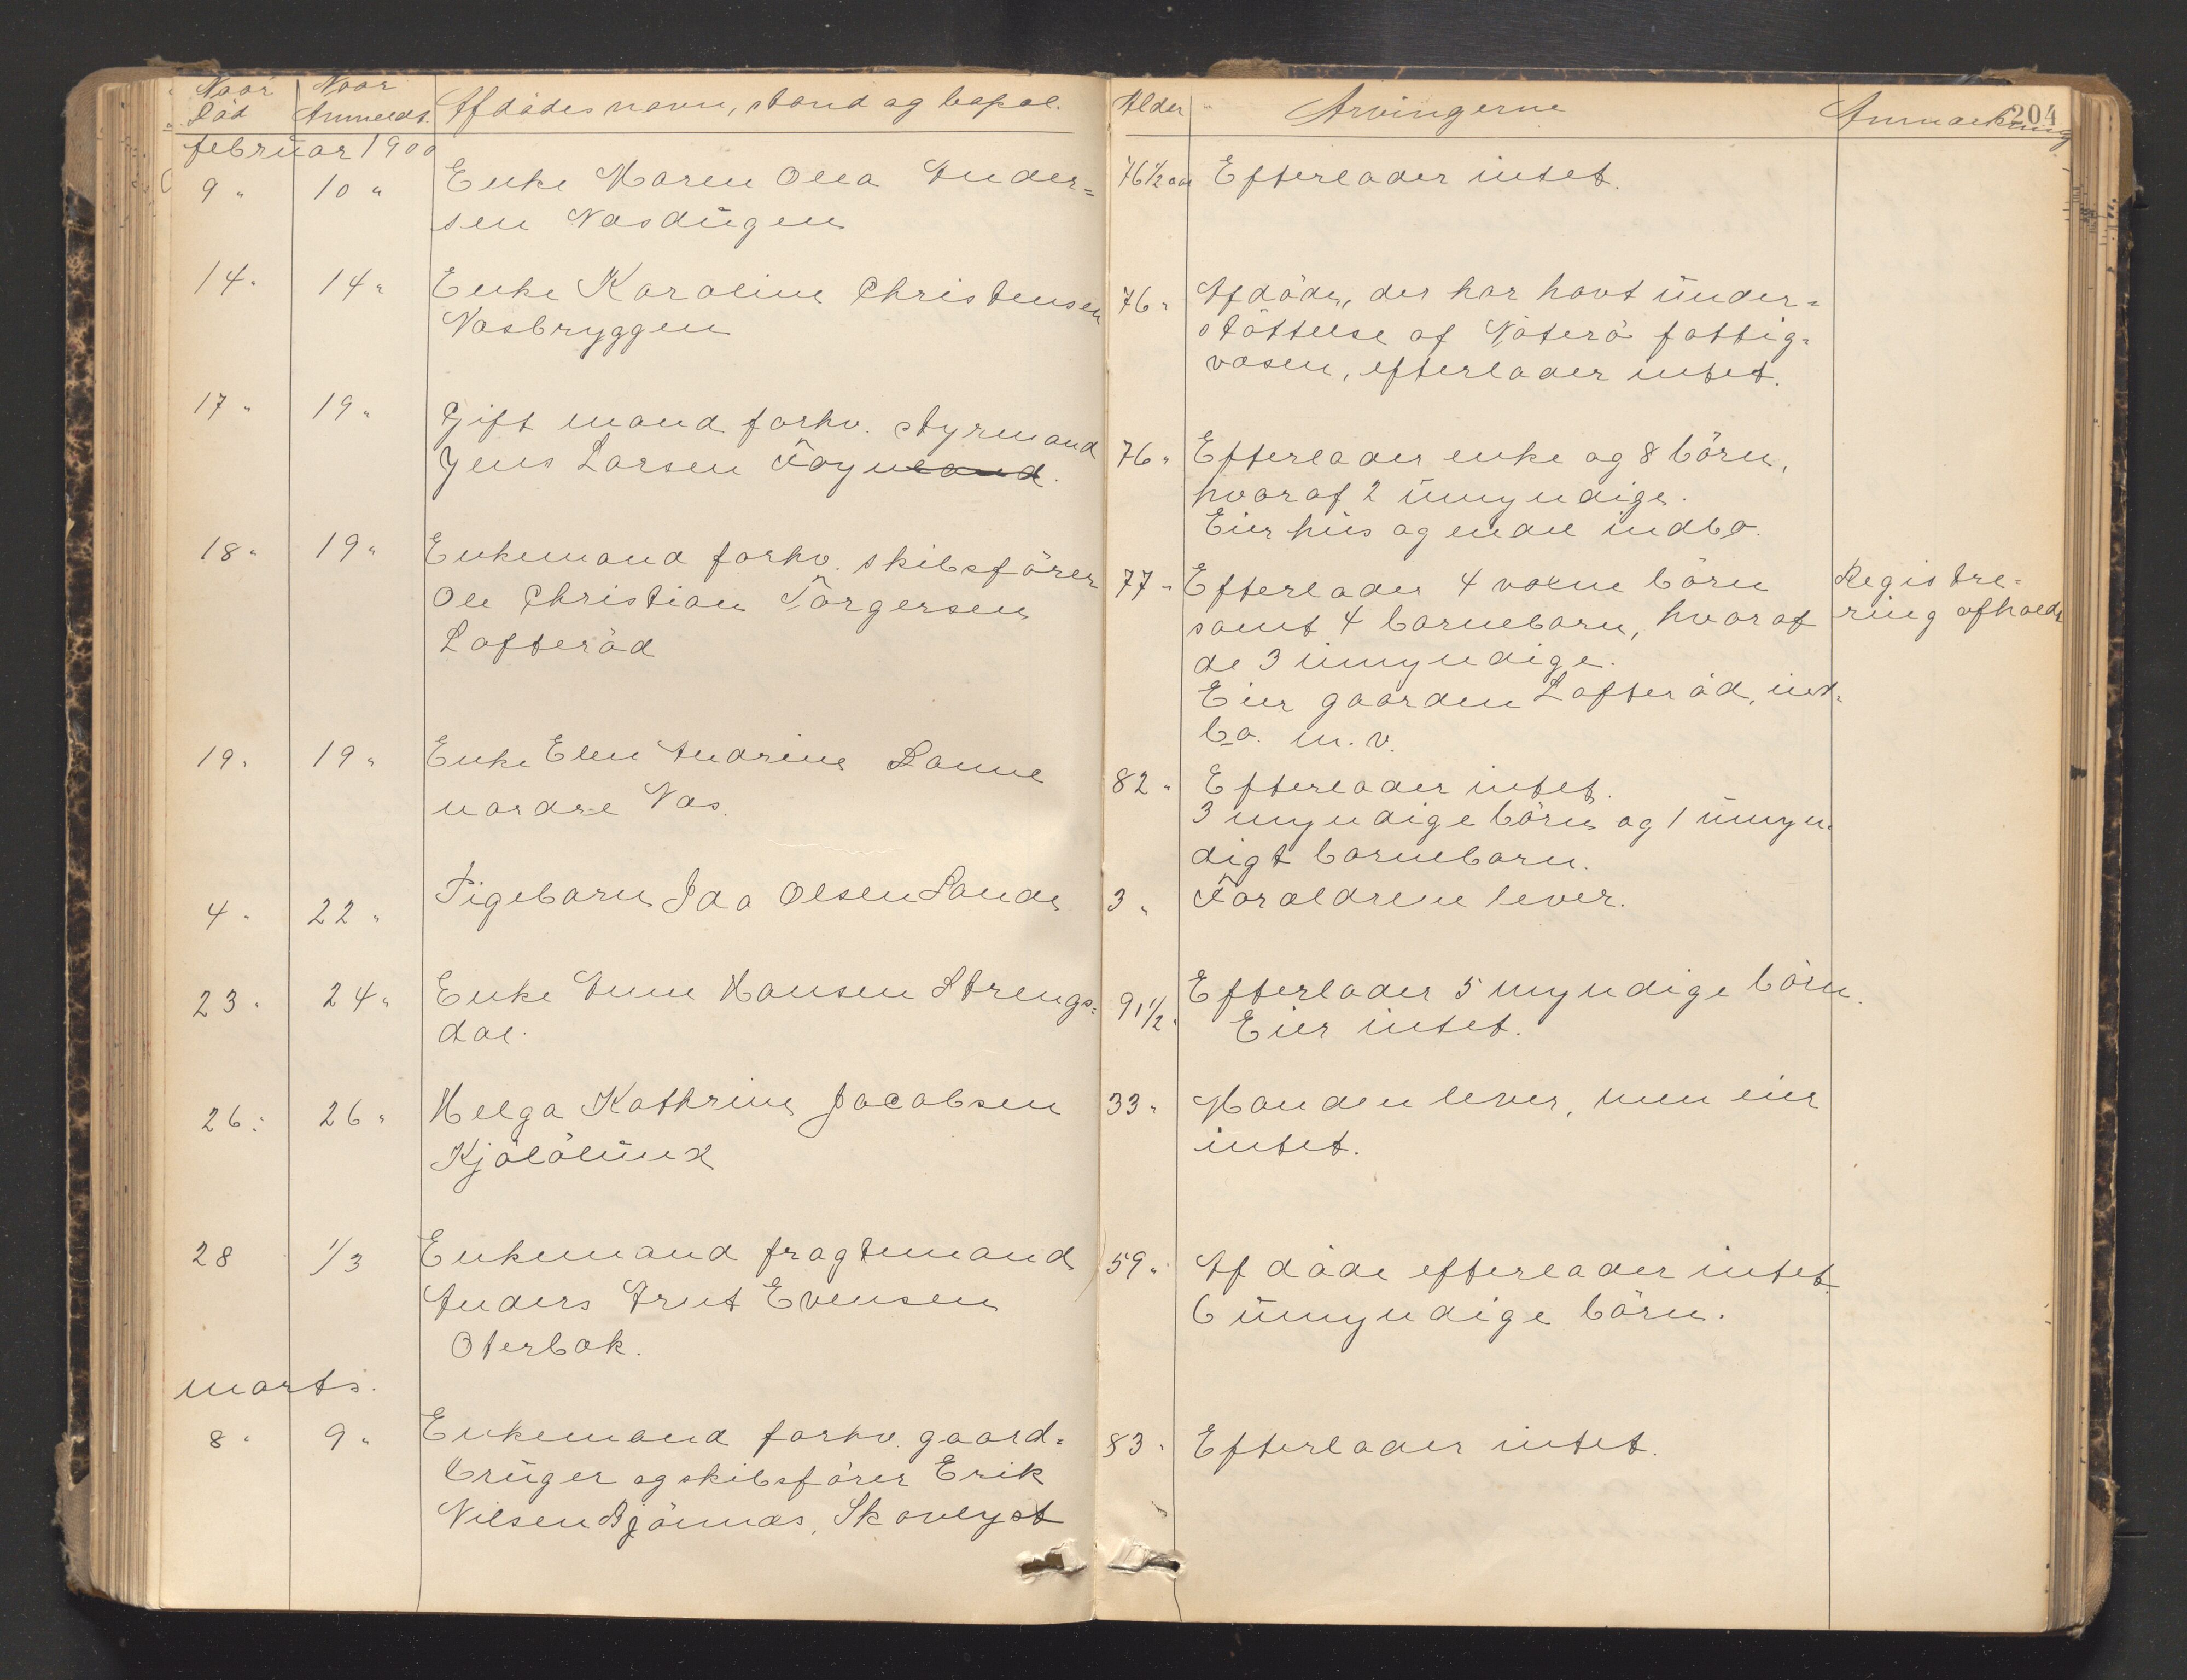 Naar Død
Naar Anmeldt.
Afdødes navn, stand og bopæl.
Alder
Arvingerne
Anmærkning
204
februar 1900
9 " 10 " Enke Maren Olea Ander=
sen Næsdügen
76 1/2 aar Efterlader intet.
14 " 14 " Enke Karoline Christensen
Næsbryggen
76 " Afdöde, der har havt ünder=
stöttelse af Nöterö fattig=
væsen, efterlader intet.
17 " 19 " Gift mand forhv. styrmand
Jens Larsen Föynland.
76 " Efterlader enke og 8 börn,
hvoraf 2 ümyndige.
Eier hüs og endel indbo.
18 " 19 " Enkemand forhv. skibsförer
Ole Christian Törgersen
Lofteröd
77 " Efterlader 4 voxne börn
samt 4 barnebarn, hvoraf
de 3 ümyndige.
Eier gaarden Lofteröd, ind=
bo. m. v.
Registre=
ring afholdt
19 " 19 " Enke Elen Andrine Bonne
nordre Næs.
82 " Efterlader intet.
3 myndige börn og 1 ümyn=
digt barnebarn.
4 " 22 " Pigebarn Ida Olsen Sande
3 " Forældrene lever.
23 " 24 " Enke Anne Hansen Strengs=
dal.
91 1/2 " Efterlader 5 myndige börn.
Eier intet.
26 " 26 " Helga Kathrine Jacobsen
Kjölölünd
33 " Manden lever, men eier
intet.
28 1/3 Enkemand fragtemand
Anders Arnt Evensen
Oterbæk.
59 " Afdöde efterlader intet.
6 ümyndige börn.
marts.
8 " 9 " Enkemand forhv. gaard=
brüger og skibsförer Erik
Nilsen Bjönnæs, Skovlyst
83 " Efterlader intet.